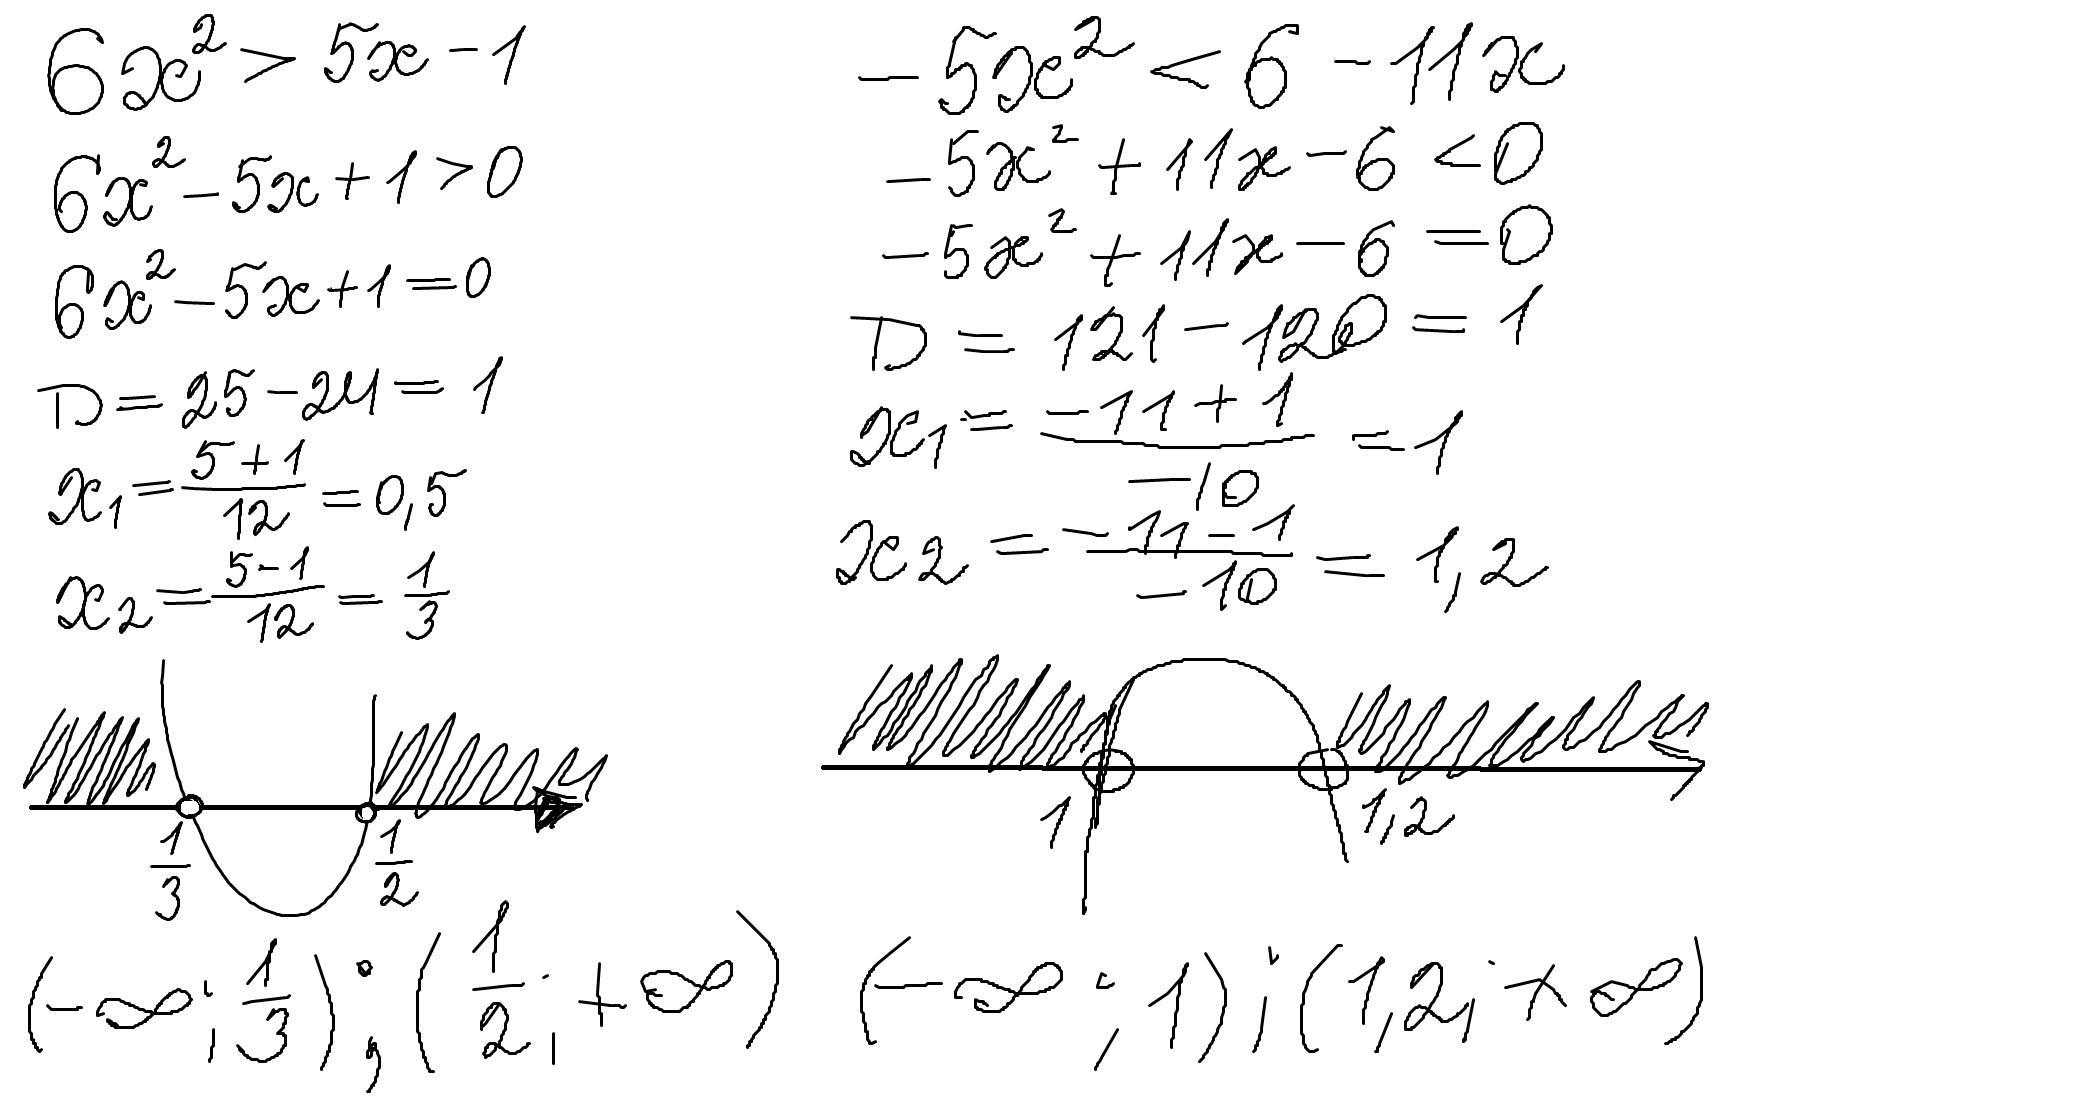 6x² > 5x - 1
6x² - 5x + 1 > 0
6x² - 5x + 1 = 0
D = 25 - 24 = 1
x₁ = (5 + 1)/12 = 0,5
x₂ = (5 - 1)/12 = 1/3
1/3 1/2
(-∞; 1/3) ; (1/2; +∞)
-5x² < 6 - 11x
-5x² + 11x - 6 < 0
-5x² + 11x - 6 = 0
D = 121 - 120 = 1
x₁ = (-11 + 1)/(-10) = 1
x₂ = (-11 - 1)/(-10) = 1,2
1 1,2
(-∞; 1) ; (1,2; +∞)